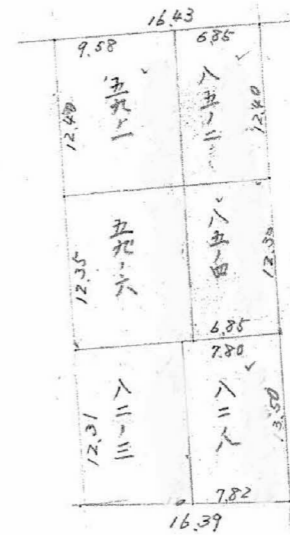 16.43
9.58
6.85
12.40
五九ノ二
八五ノ二
12.40
12.35
五九ノ六
八五ノ四
12.30
6.85
7.80
12.31
八二ノ三
八二ノ八
13.50
7.82
16.39